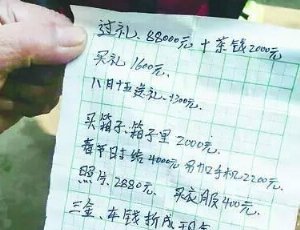 过礼、88000元 + 茶钱2000元
买礼 1600元、
八月十五送礼、1300元、
买箱子、箱子里 2000元、
春节日时给 4000元 另加手机2200元、
照片、2880元、 买衣服 400元、
三金、车钱折成现